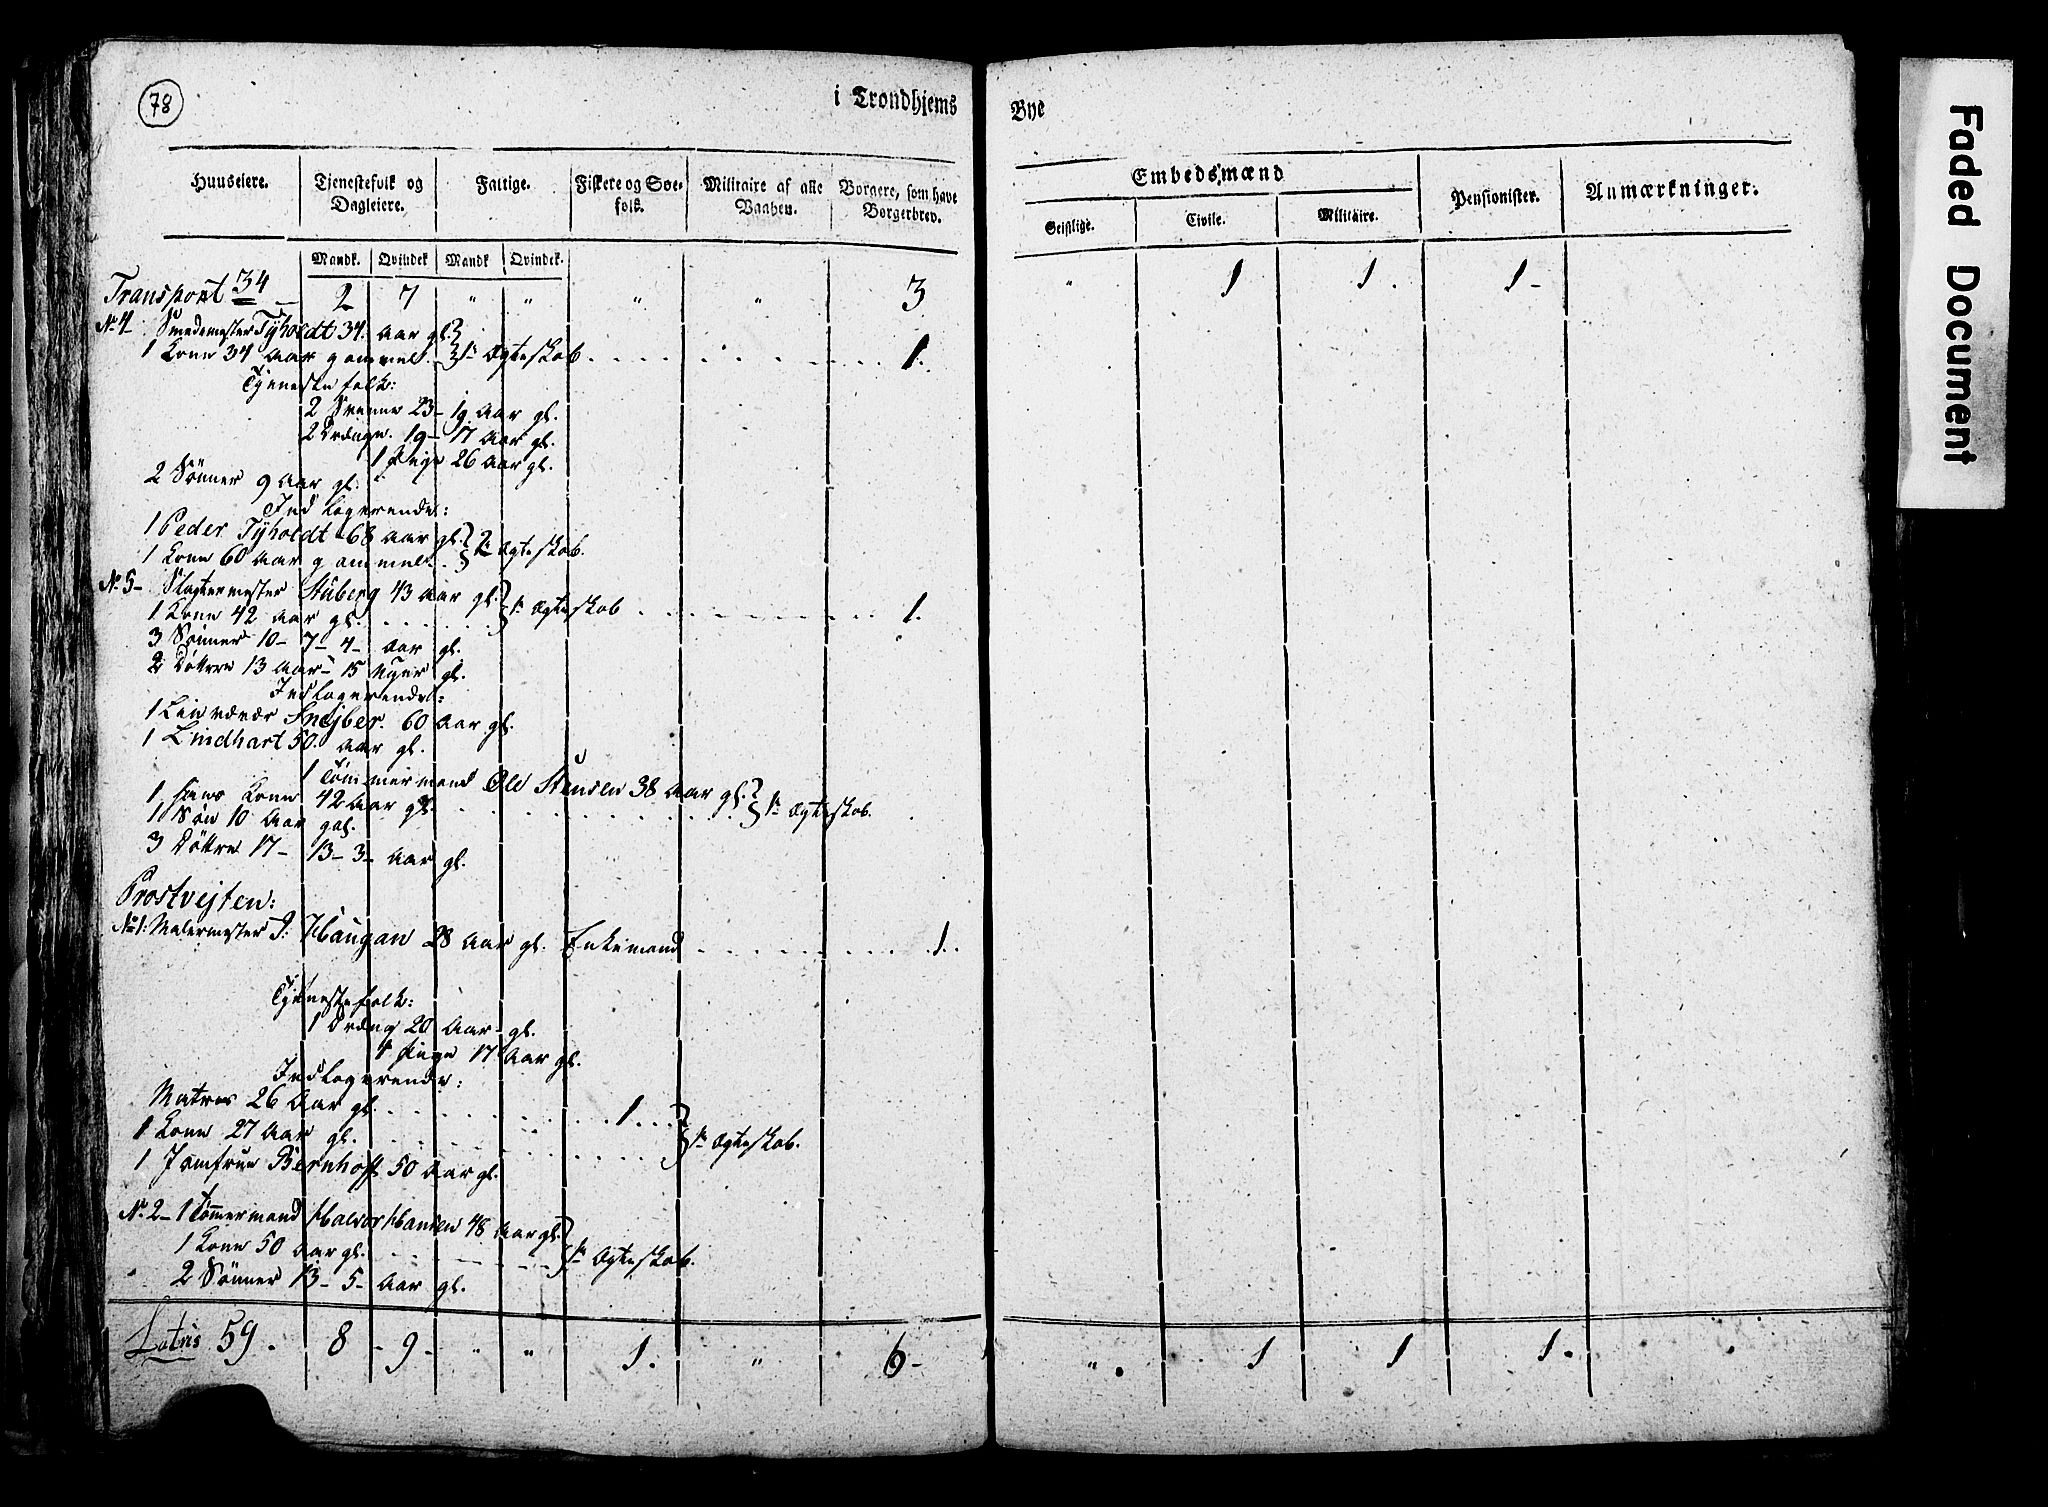 78
i Trondhjems Bye
Huuseiere. Tjenestefolk og Dagleiere. Fattige. Fiskere og Søefolk. Militaire af alle Vaaben. Borgere, som have Borgerbrev. Embedsmænd Pensionister. Anmærkninger.
Geistlige. Civile. Militaire.
Mandk. Qvindek Mandk Qvindek.
Transport 34 — 2 7 " " " " 3 " 1 1. 1-
No 4 Smedemester Tÿholdt 34. Aar gl.
1 Kone 34 Aar gammel. } 1te Ægteskab . . . . 1.
Tjenestefolk:
2 Svenne 23- 19 Aar gl.
2 Drænge. 19- 17 Aar gl.
1 Pige 26 Aar gl.
2 Sønner 9 Aar gl.
Indlogerende:
1 Peder Tÿholdt 68 Aar gl. } 2. Ægteskab.
1 Kone 60 Aar gammel. }
No 5- Slagtermester Stuberg 43 Aar gl.
1 Kone 42 Aar gl. . . . . } 1te Ægteskab . . . . 1.
3 Sønner 10- 7- 4- Aar gl.
2 Døttre 13 Aar- 15 Uger gl.
Indlogerende:
1 Linvævær Snejber. 60 Aar gl.
1 Lindhart 50. Aar gl.
1 Tømmermand Ole Stensen 38 Aar gl. }
1 hans Kone 42 Aar gl. . . . . } 1te Ægteskab.
1 Søn 10 Aar gal.
3 Døttre 17- 13- 3- Aar gl.
Prostvejten:
No 1: Malermester J: Haugan 28 Aar gl. Enkemand . . . . 1.
Tjenestefolk:
1 Dræng 20 Aar gl.
1 Pige 17 Aar gl.
Indlogerende:
Matros 26 Aar gl. . . . . 1. . . }
1 Kone 27 Aar gl. . . . . } 1te Ægteskab.
1 Jomfrue Bernhoft 50 Aar gl.
No 2- 1 Tømermand Halvor Hansen 48 Aar gl. }
1 Kone 50 Aar gl. . . . . } 1te Ægteskab.
2 Sønner 13- 5- Aar gl.
Latus 59. 8 - 9 - " " 1. " 6- " 1 1 1.
Faded Document